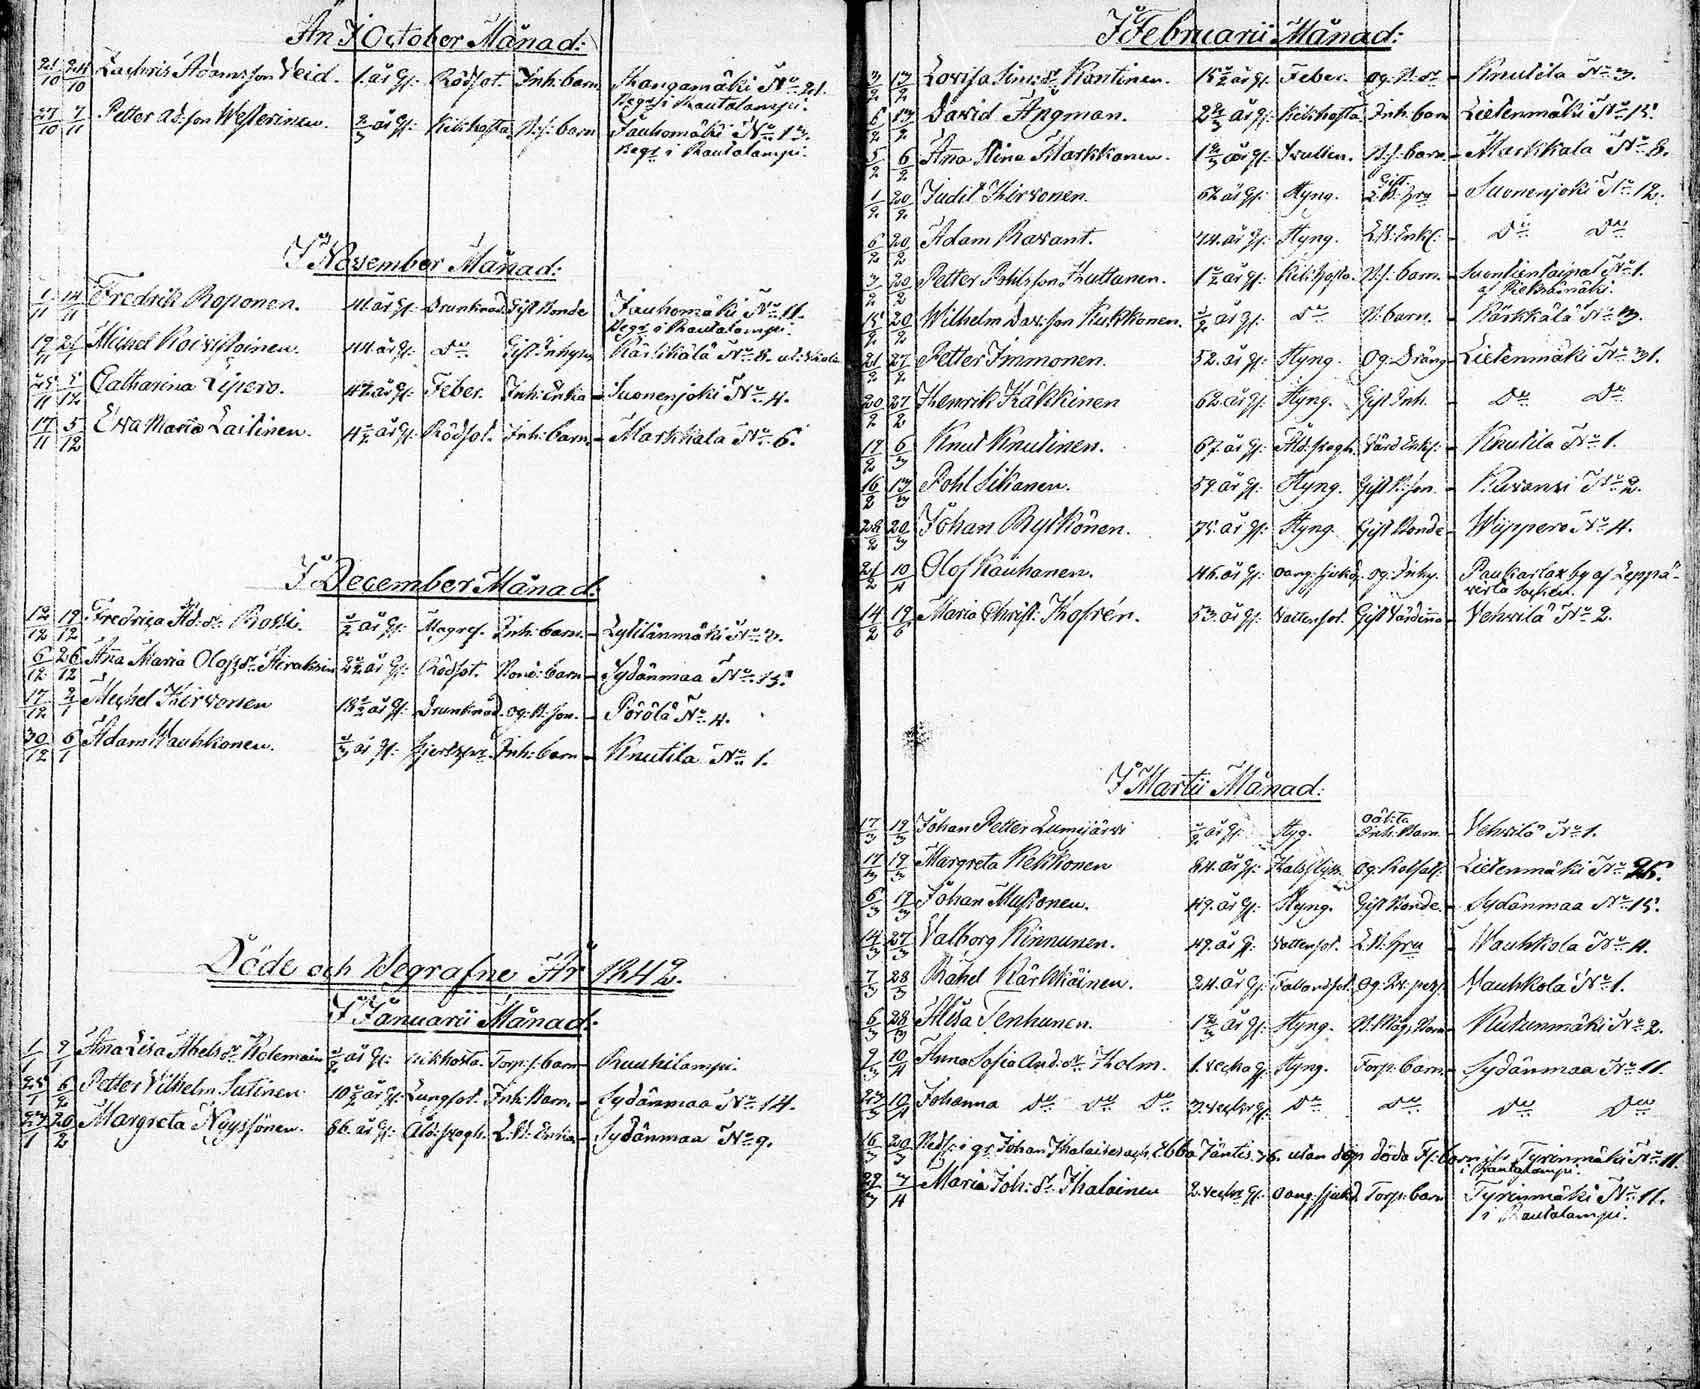 Än I October Månad:
21/10 24/10 Zachris Adamsson Veid. 1. år gl: Rödsot. Inh: barn Kangamäki No 21.
Begr. i Rautalampi.
27/10 7/11 Petter Ad:son Westerinen. 2/3 år gl: Kikhosta B:s: barn Jauhomäki No 13.
Begr. i Rautalampi.
I November Månad:
1/11 14/11 Fredrik Roponen. år gl: Drunknad Gift Bonde Jauhomäki No 11.
Begr. i Rautalampi.
19/11 21/11 Michel Koivistoinen. 44. år gl: Do Gift Inhyses Kärkkälä No 8.
25/11 5/12 Catharina Lipero. år gl: Feber. Inh: Enka – Suonenjoki No 4.
17/11 5/12 Ewa Maria Laitinen. 4 1/2 år gl: Rödsot. Inh: barn – Markkala No 6.
I December Månad:
12/12 19/12 Fredrica Ad: dr Rossi. 1/2 år gl: Magref. Inh: barn – Lylilänmäki No
6/12 26/12 Anna Maria Olofs dr Hirakin 2 1/2 år gl: Rödsot. Bond: barn – Sydänmaa No 15.
17/12 2/1 Michel Hirvonen 18 1/2 år gl: Drunknad og: B: son. – Pörölä No 4.
30/12 6/1 Adam Wauhkonen. 1/3 år gl: Inh: barn – Knutila No 1.
Döde och Begrafne År 1842.
I Januarii Månad:
1/1 9/1 Ana Lisa Abels dr Kolemain 1/2 år gl: kikhosta. Torp: s: barn – Rauhilampi.
25/1 6/2 Petter Vilhelm Sutinen. 10 1/2 år gl: Lungsot. Inh: Barn. – Sydänmaa No 14.
23/1 20/2 Margreta Nyyssönen. 66. år gl: Ald: krogh. Enka – Sydänmaa No 9.
I Februarii Månad:
3/2 13/2 Lovisa Sim: dr Kontinen. 15 1/2 år gl: Feber. og: B: dr – Knutila No 3.
6/2 13/2 David Ångman. 2 2/3 år gl: Kikhosta Inh: barn Lietenmäki No 15.
5/2 6/2 Anna Stina Markkanen. 1 2/3 år gl: B: s: barn – Markkala No 8.
1/2 20/2 Judit Hirvonen. 62. år gl: Styng. Gift Suonenjoki No 12.
6/2 20/2 Adam Ravant. 44. år gl: Styng. Enkl: – Do Do
3/2 20/2 Petter Pohlsson Huttunen. 1 1/2 år gl: Kikhosta. B: s: barn. – Suontientaipal No 1.
af Pieksämäki.
15/2 20/2 Wilhelm Davsson Kukkonen. 1/2 år gl: Do B: barn. – Kärkkälä No 13.
21/2 27/2 Petter Immonen. 52. år gl: Styng. Og: Dräng Lietenmäki No 31.
20/2 27/2 Henrik Häkkinen 62. år gl: Styng. Gift Inh. – Do Do
17/2 6/3 Knut Knutinen. 67. år gl: Ald: krogh. Värd Enkl: – Knutila No 1.
16/2 13/3 Pohl Sikanen. 59. år gl: Styng. Gift B: son. – Kuvansi No 2.
28/2 20/3 Johan Rytkönen. 75. år gl: Styng Gift Bonde – Wippero No 4.
21/2 10/4 Olof Kauhanen. 46. år gl: oang: sjukd. og: Inhy. Paukarlax by af Leppä-
virta socken.
14/2 19/6 Maria Christ: Hofrén. 53. år gl: Vattensot. Gift Värdinna – Vehvilä No 2.
I Martii Månad:
17/3 19/3 Johan Petter Lumijärvi 1/2 år gl: Styg. oäkta
Inh: Barn – Vehvilä No 1.
17/3 19/3 Margreta Kekkonen 84. år gl: Og: Rotfatt: Lietenmäki No 25.
6/3 19/3 Johan Mustonen. 49. år gl: Styng. Gift Bonde. – Sydänmaa No 15.
14/3 27/3 Valborg Kinnunen. 49. år gl: Vattensot. Hru – Wauhkola No 4.
7/3 28/3 Rahel Kärkkäinen. 24. år gl: Fallandsot. Og: pig. Wauhkola No 1.
6/3 28/3 Alisa Tenhunen. 1 2/3 år gl: Styng. Barn – Kutunmäki No 2.
9/3 10/4 Anna Sofia And: dr Holm. 1. vecka gl: Styng. Torp: barn – Sydänmaa No 11.
23/3 10/4 Johanna Do Do Do 3. veckor gl: Do Do Do Do
16/3 20/3 Johan Halainen och Ebba Jäntis. utan dop döda Fl: barn ifr. Tyrinmäki No 11.
i Rautalampi.
29/3 7/4 Maria Joh: dr Halainen 2. veckor gl: oang: sjukd. Torp: barn Tyrinmäki No 11.
i Rautalampi.